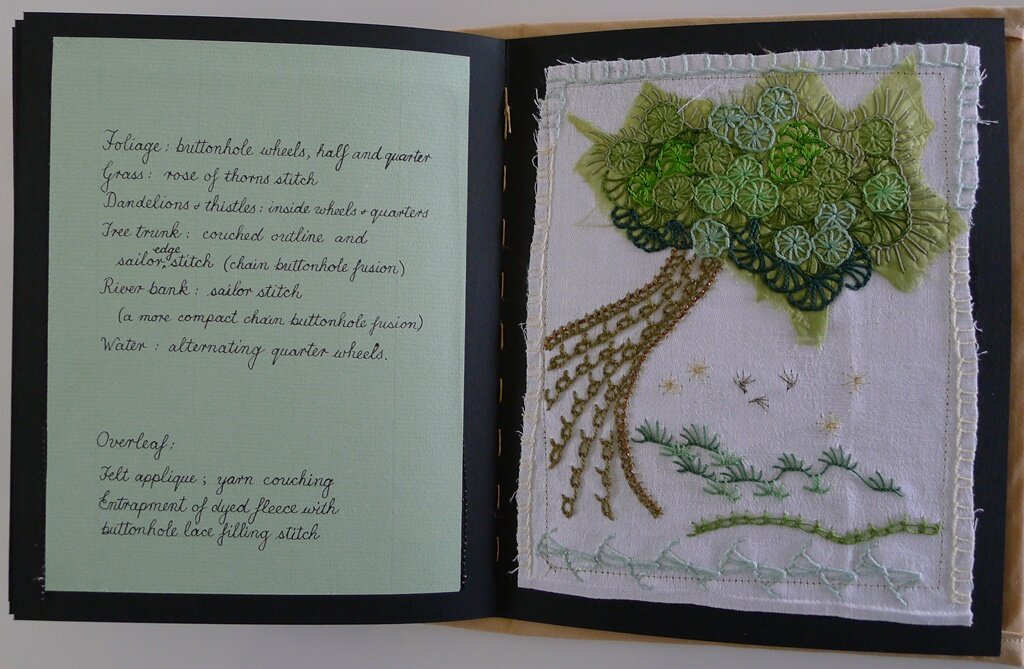 Foliage: buttonhole wheels, half and quarter
Grass: rose of thorns stitch
Dandelions + thistles: inside wheels + quarters
Tree trunk: couched outline and
sailor edge stitch (chain buttonhole fusion)
River bank: sailor stitch
(a more compact chain buttonhole fusion)
Water: alternating quarter wheels.
Overleaf:
Felt applique; yarn couching
Entrapment of dyed fleece with
buttonhole lace filling stitch